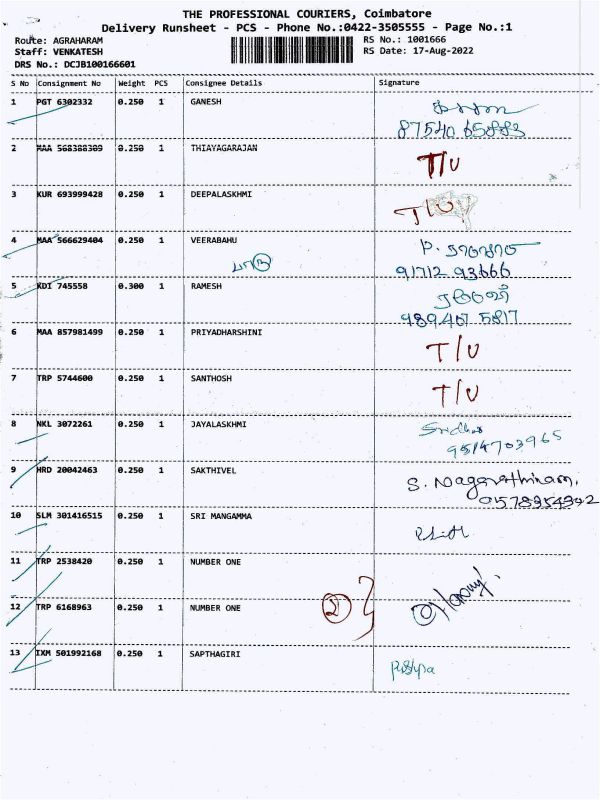 THE PROFESSIONAL COURIERS, Coimbatore
Delivery Runsheet - PCS - Phone No.:0422-3505555 - Page No.:1
Route: AGRAHARAM
RS No.: 1001666
Staff: VENKATESH
RS Date: 17-Aug-2022
DRS No.: DCJB100166601
S No Consignment No Weight PCS Consignee Details Signature
1 PGT 6302332 0.250 1 GANESH
87540 65883
2 MAA 568388309 0.250 1 THIAYAGARAJAN T/U
3 KUR 693999428 0.250 1 DEEPALASKHMI T/U
4 MAA 566629404 0.250 1 VEERABAHU P.
91712 93666
5 KDI 745558 0.300 1 RAMESH
989407 5817
6 MAA 857981499 0.250 1 PRIYADHARSHINI T/U
7 TRP 5744600 0.250 1 SANTHOSH T/U
8 NKL 3072261 0.250 1 JAYALASKHMI Sridhar
9514703965
9 HRD 20042463 0.250 1 SAKTHIVEL S. Nagarathinam.
10 SLM 301416515 0.250 1 SRI MANGAMMA
11 TRP 2538420 0.250 1 NUMBER ONE
12 TRP 6168963 0.250 1 NUMBER ONE 2
13 IXM 501992168 0.250 1 SAPTHAGIRI Pushpa